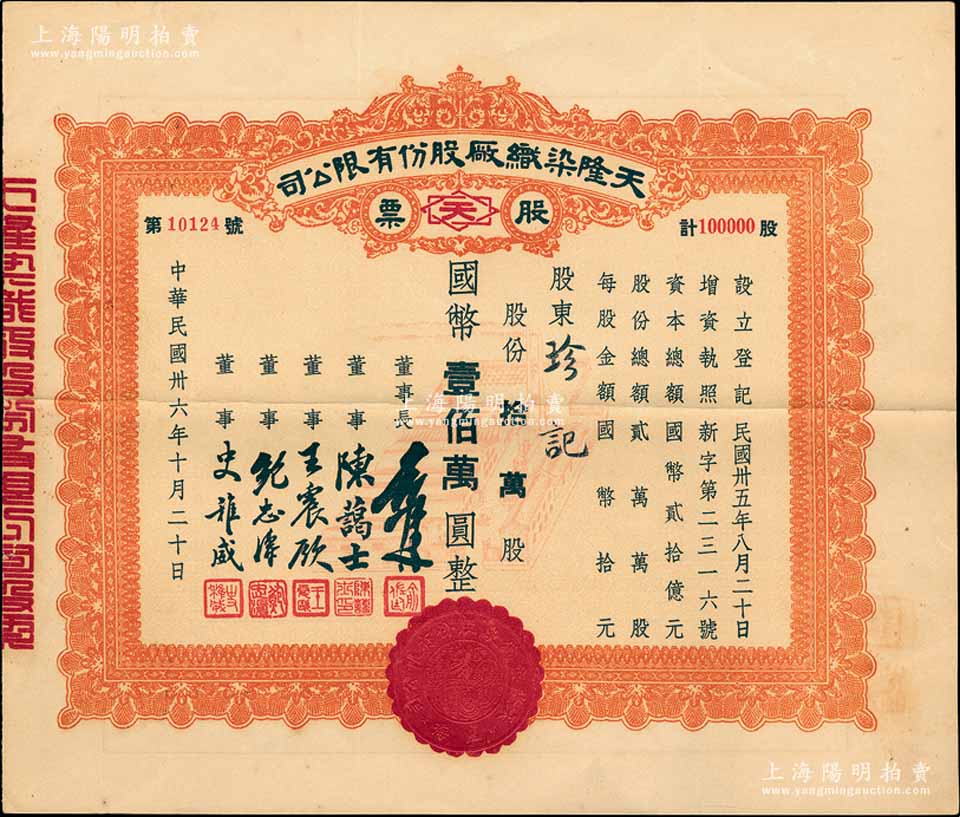 上海陽明拍賣
www.yangmingauction.com
天隆染織廠股份有限公司
股票
天
計100000股
第10124號
設立登記民國卅五年八月二十日
增資執照新字第二三一六號
資本總額國幣貳拾億元
股份總額貳萬萬股
每股金額國幣拾元
股東珍記
股份拾萬股
國幣壹佰萬圓整
董事長
董事陳藹士
董事王震欣
董事
董事史雅威
中華民國卅六年十月二十日
上海陽明拍賣
www.yangmingauction.com
上海陽明拍賣
www.yangmingauction.com